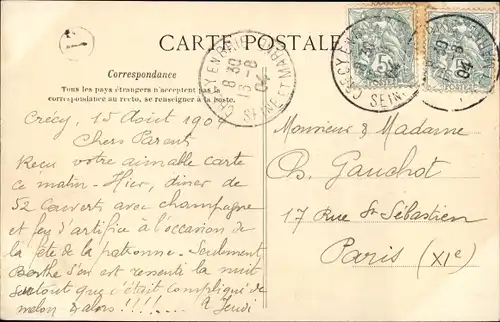 CARTE POSTALE
Correspondance
Tous les pays étrangers n'acceptent pas la
correspondance au recto, se renseigner à la poste.
CRÉCY EN BRIE
8 30
SEINE ET MARNE
04
5
5
Crécy, 15 Août 1904
Chers Parents
Reçu votre aimable carte
ce matin - Hier, diner de
52 couverts avec champagne
et feu d'artifice à l'occasion de
la fête de la patronne - Seulement,
Berthe s'en est ressentie la nuit
surtout que c'était compliqué de
melon & alors !!!!...
à Jeudi
Monsieur & Madame
Ch. Gauchot
17 Rue St Sébastien
Paris (XIe)